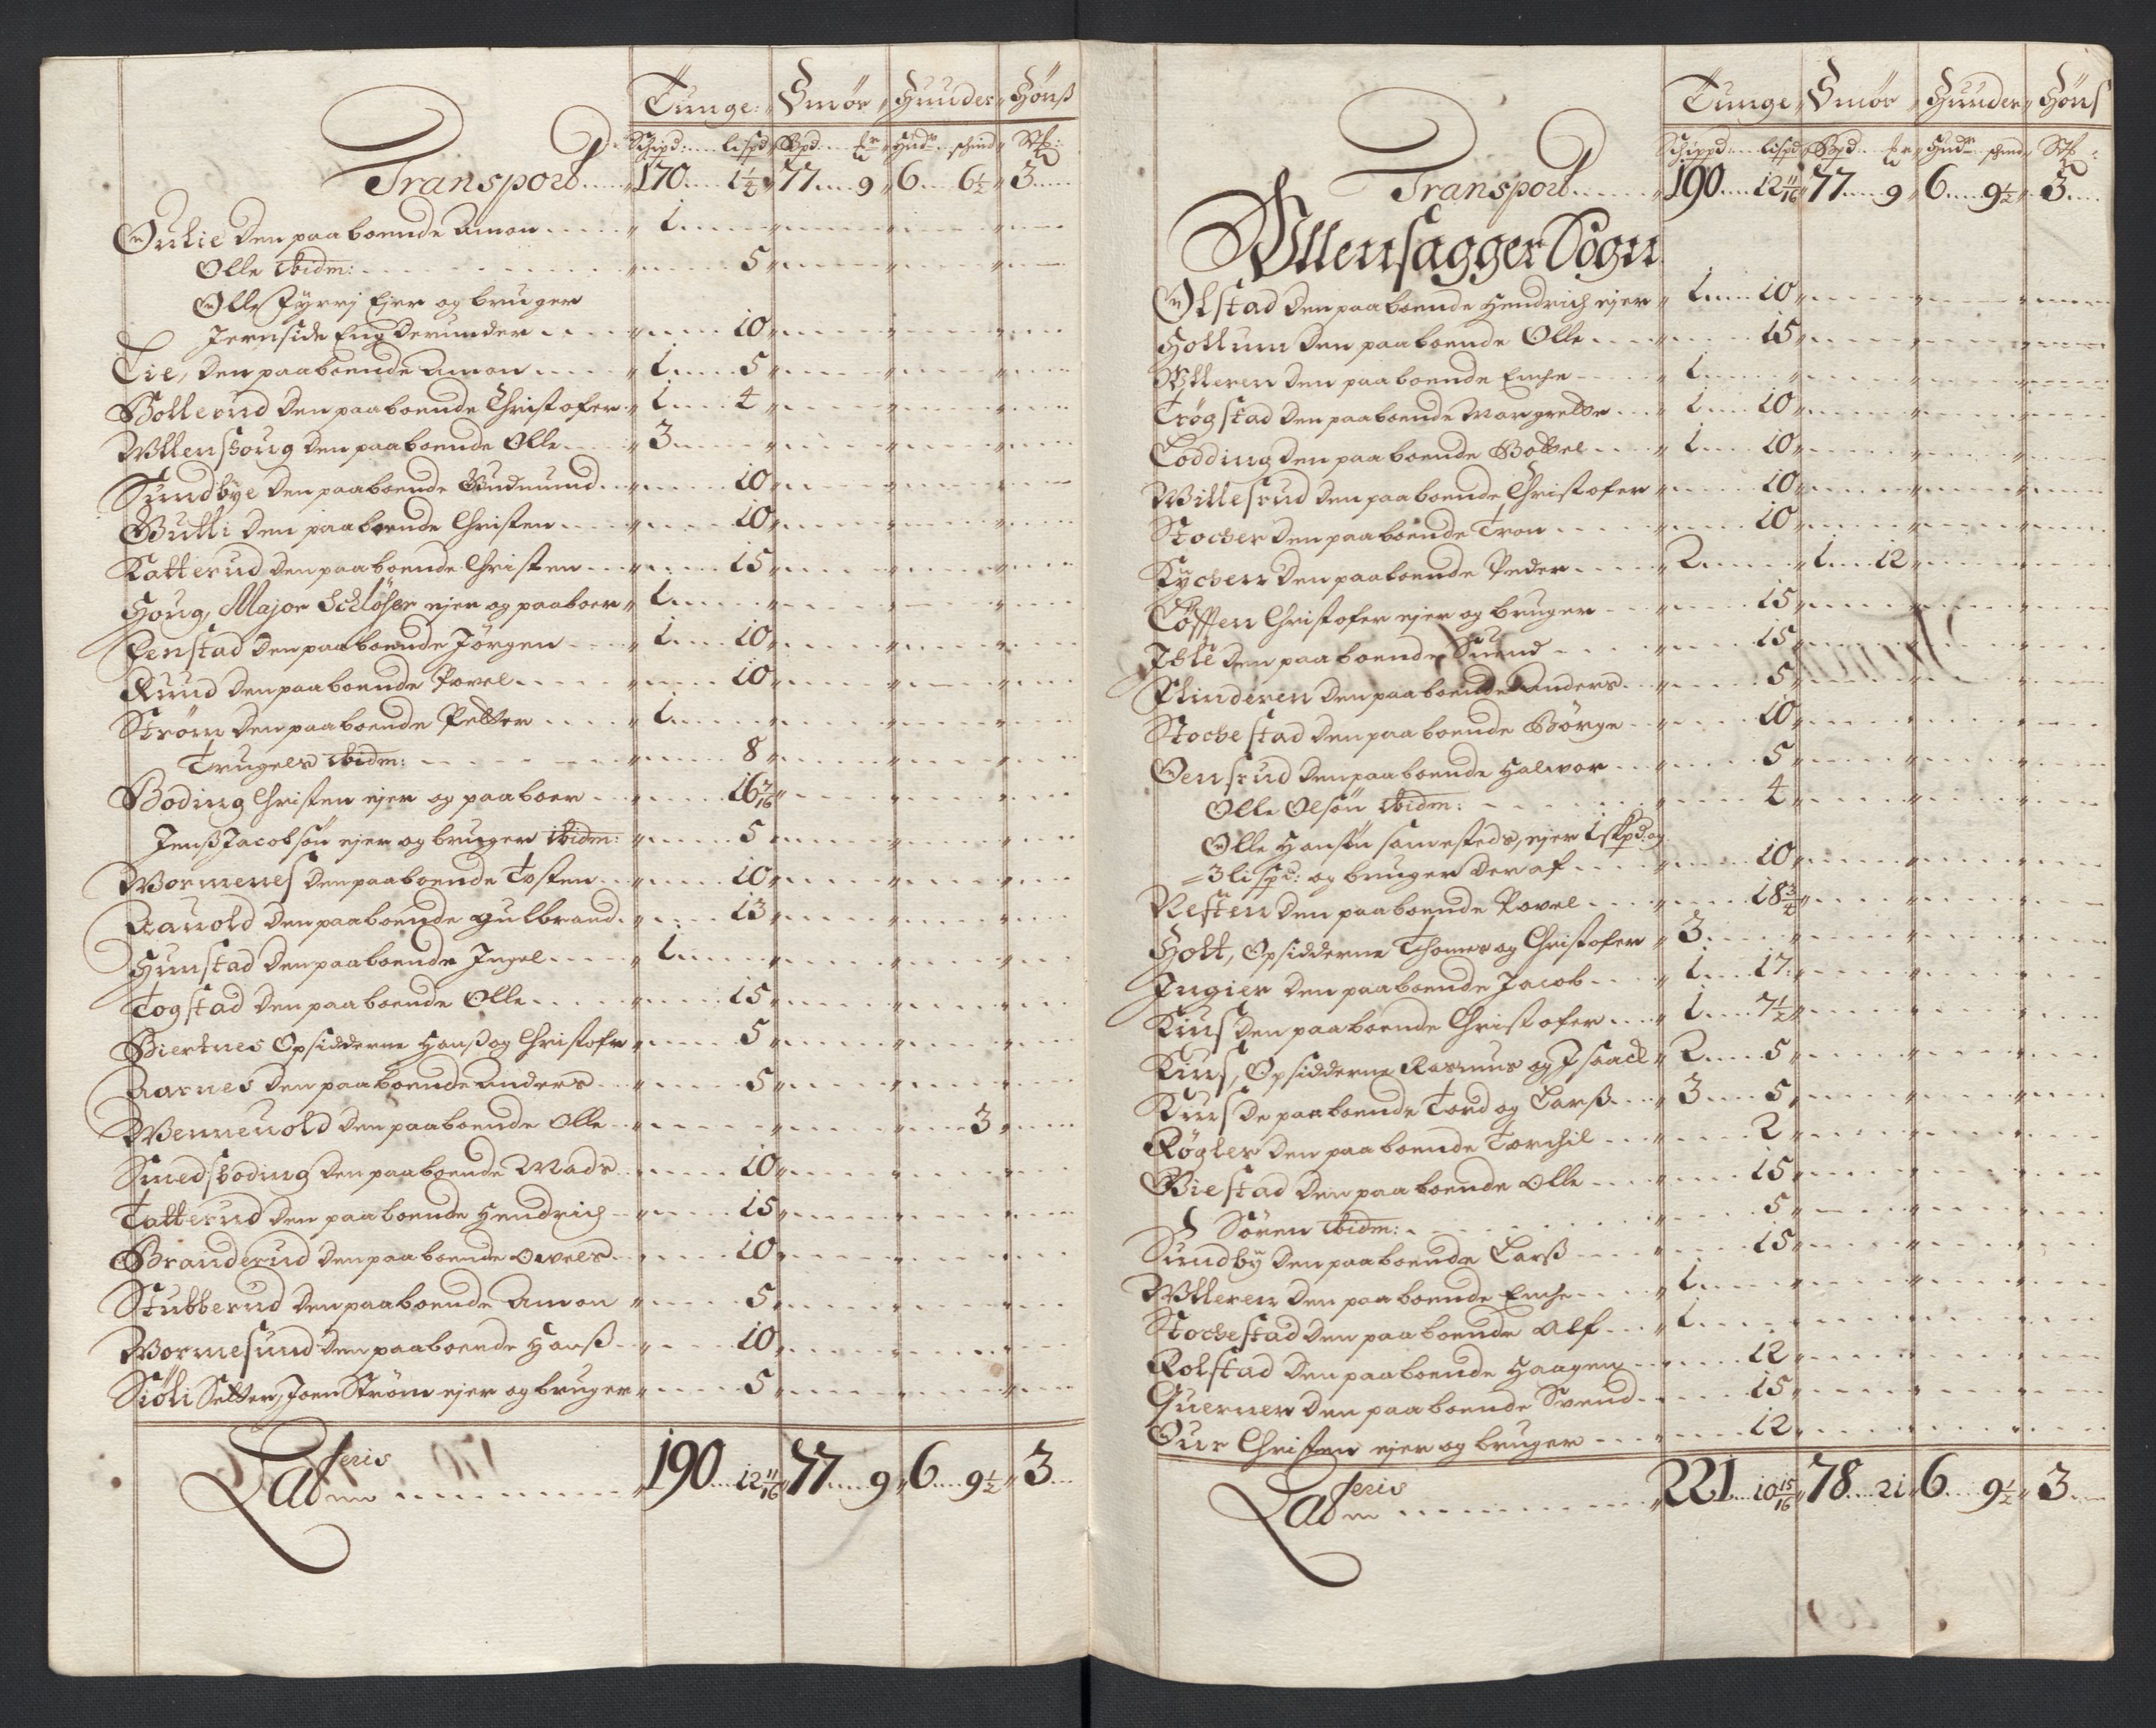 Tunge: Smör Huuder Hönß
Schipd: lispd Bpd Hudr schind Stk:
Transport 170 1 1/4 77 9 6 6 1/2 3
Gulie den paaboende Amon 1
Olle ibidm: 5
Olle Fÿrrj Ejer og bruger
Jernside Eng derunder 10
Lie, den paaboende Amon 1 5
Bollerud den paaboende Christofer 1 4
Ullenshoug den paaboende Olle 3
Sundbÿe den paaboende Gudmund 10
Gulli den paaboende Christen 10
Katterud den paaboende Christen 15
Houg, Major Schlöser ejer og paaboer 1
Fenstad den paaboende Jörgen 1 10
Ruud den paaboende Povel 10
Ström den paaboende Petter 1
Trugels ibidm: 8
Boding Christen ejer og paaboer 16 7/16
Jenß Jacobsön ejer og bruger ibidm: 5
Wormenes den paaboende Tosten 10
Rauold den paaboende Gulbrand 13
Hunstad den paaboende Ingel 1
Togstad den paaboende Olle 15
Biertnes Opsidderne Hanß og Christofr 5
Aarnes den paaboende Anders 5
Wenneuold den paaboende Olle 3
Smedsboding den paaboende Mads 10
Tatterud den paaboende Hendrich 15
Branderud den paaboende 10
Stubberud den paaboende Amon 5
Wormesund den paaboende Hanß 10
Siöli Setter, Joen Ström ejer og bruger 5
Lateris 190 12 11/16 77 9 6 9 1/2 3
Tunge Smör Huuder Höns
Schippd: lispd Bpd: Hudr schind Stk:
Transport 190 12 11/16 77 9 6 9 1/2 3
Ullensagger Sogn
Olstad den paaboende Hendrich ejer 1 10
Hollum den paaboende Olle 15
Ulleren den paaboende 1
Trögstad den paaboende Margrette 1 10
Lodding den paaboende Bottel 1 10
Willesrud den paaboende Christofer 10
Stocher den paaboende Tron 10
Kÿchen den paaboende Peder 2 1 12
Löffen Christofer ejer og bruger 15
Ihle den paaboende Suend 15
Flinderen den paaboende Anders 5
Stochestad den paaboende Börge 10
Gensrud den paaboende Halvor 5
Olle Olsön ibidm: 4
Olle Hansön samesteds, ejer 1 skpd: og
3 lispd: og bruger der af 10
Nesten den paaboende Povel 18 3/4
Holt, Opsidderne Thomes og Christofer 3
Ingier den paaboende Jacob 1 17
Kius den paaboende Christofer 1 7 1/2
Kius, Opsidderne Rasmus og Isaack 2 5
Kius de paaboende Tord og Larß 3 5
Rögler den paaboende Torchil 2
Biestad den paaboende Olle 15
Sören ibidm: 5
Sundbÿ den paaboende Larß 15
Ulleren den paaboende 1
Stochestad den paaboende Alf 1
Rolstad den paaboende Haagen 12
Querner den paaboende Svend 15
Our Christen ejer og bruger 12
Lateris 221 10 15/16 78 21 6 9 1/2 3